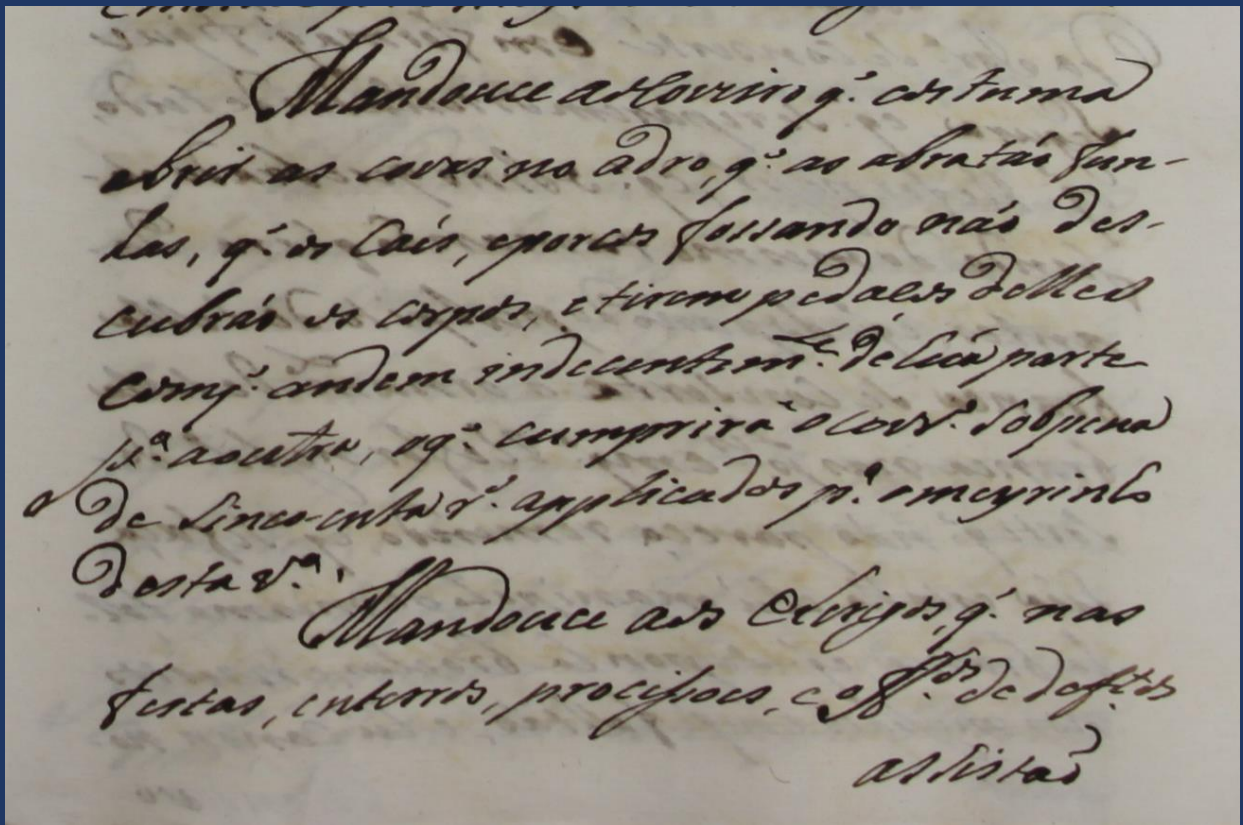 Mandouce ao Coveiro q. costuma
abrir as covas no adro, q. as abra tão fun-
das, q. os Cães, eporcos fossando não des-
cubrão os corpos, etirem pedaços delles
comq. andem indecentem.te de huã parte
p.a aoutra, oq. cumprirá o cov.o sobpena
de Sincoenta r.s applicados p.a omeyrinho
desta v.a.
Mandouce aos Clerigos, q. nas
festas, enterros, procissoes, e off.os de def.tos
assistão